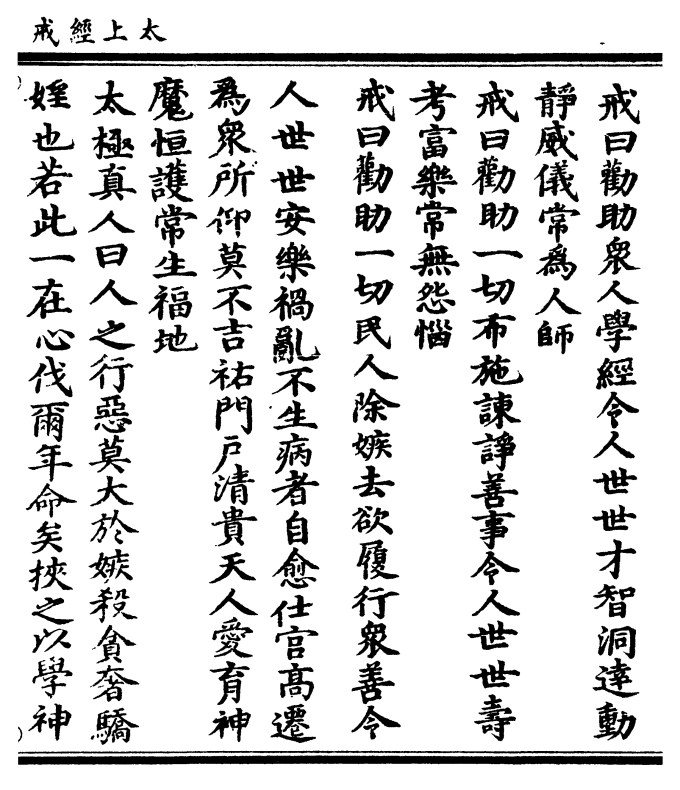 太上經戒
戒曰勸助衆人學經令人世世才智洞達動
靜威儀常爲人師
戒曰勸助一切布施諫諍善事令人世世壽
考富樂常無怨惱
戒曰勸助一切民人除嫉去欲履行衆善令
人世世安樂禍亂不生病者自愈仕官高遷
爲衆所仰莫不吉祐門戶清貴天人愛育神
魔恒護常生福地
太極真人曰人之行惡莫大於嫉殺貪奢驕
婬也若此一在心伐爾年命矣挾之以學神